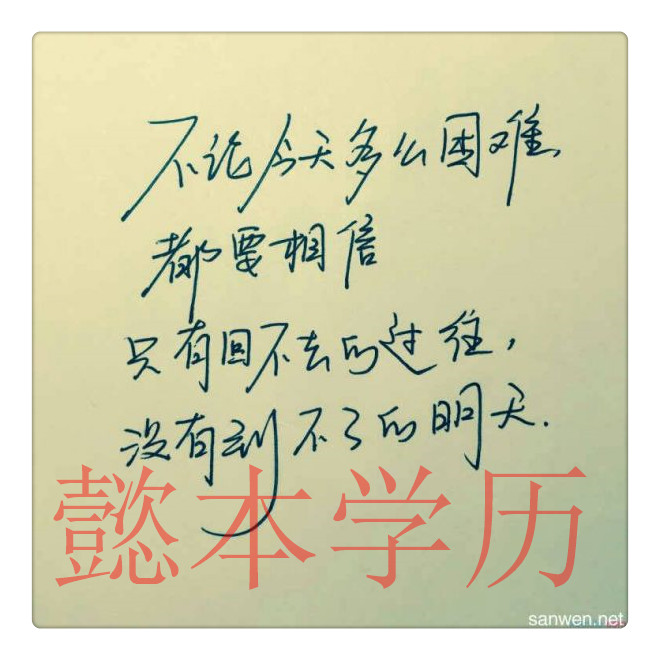 不论今天多么困难,
都要相信
只有回不去的过往,
没有到不了的明天.
懿本学历
sanwen.net